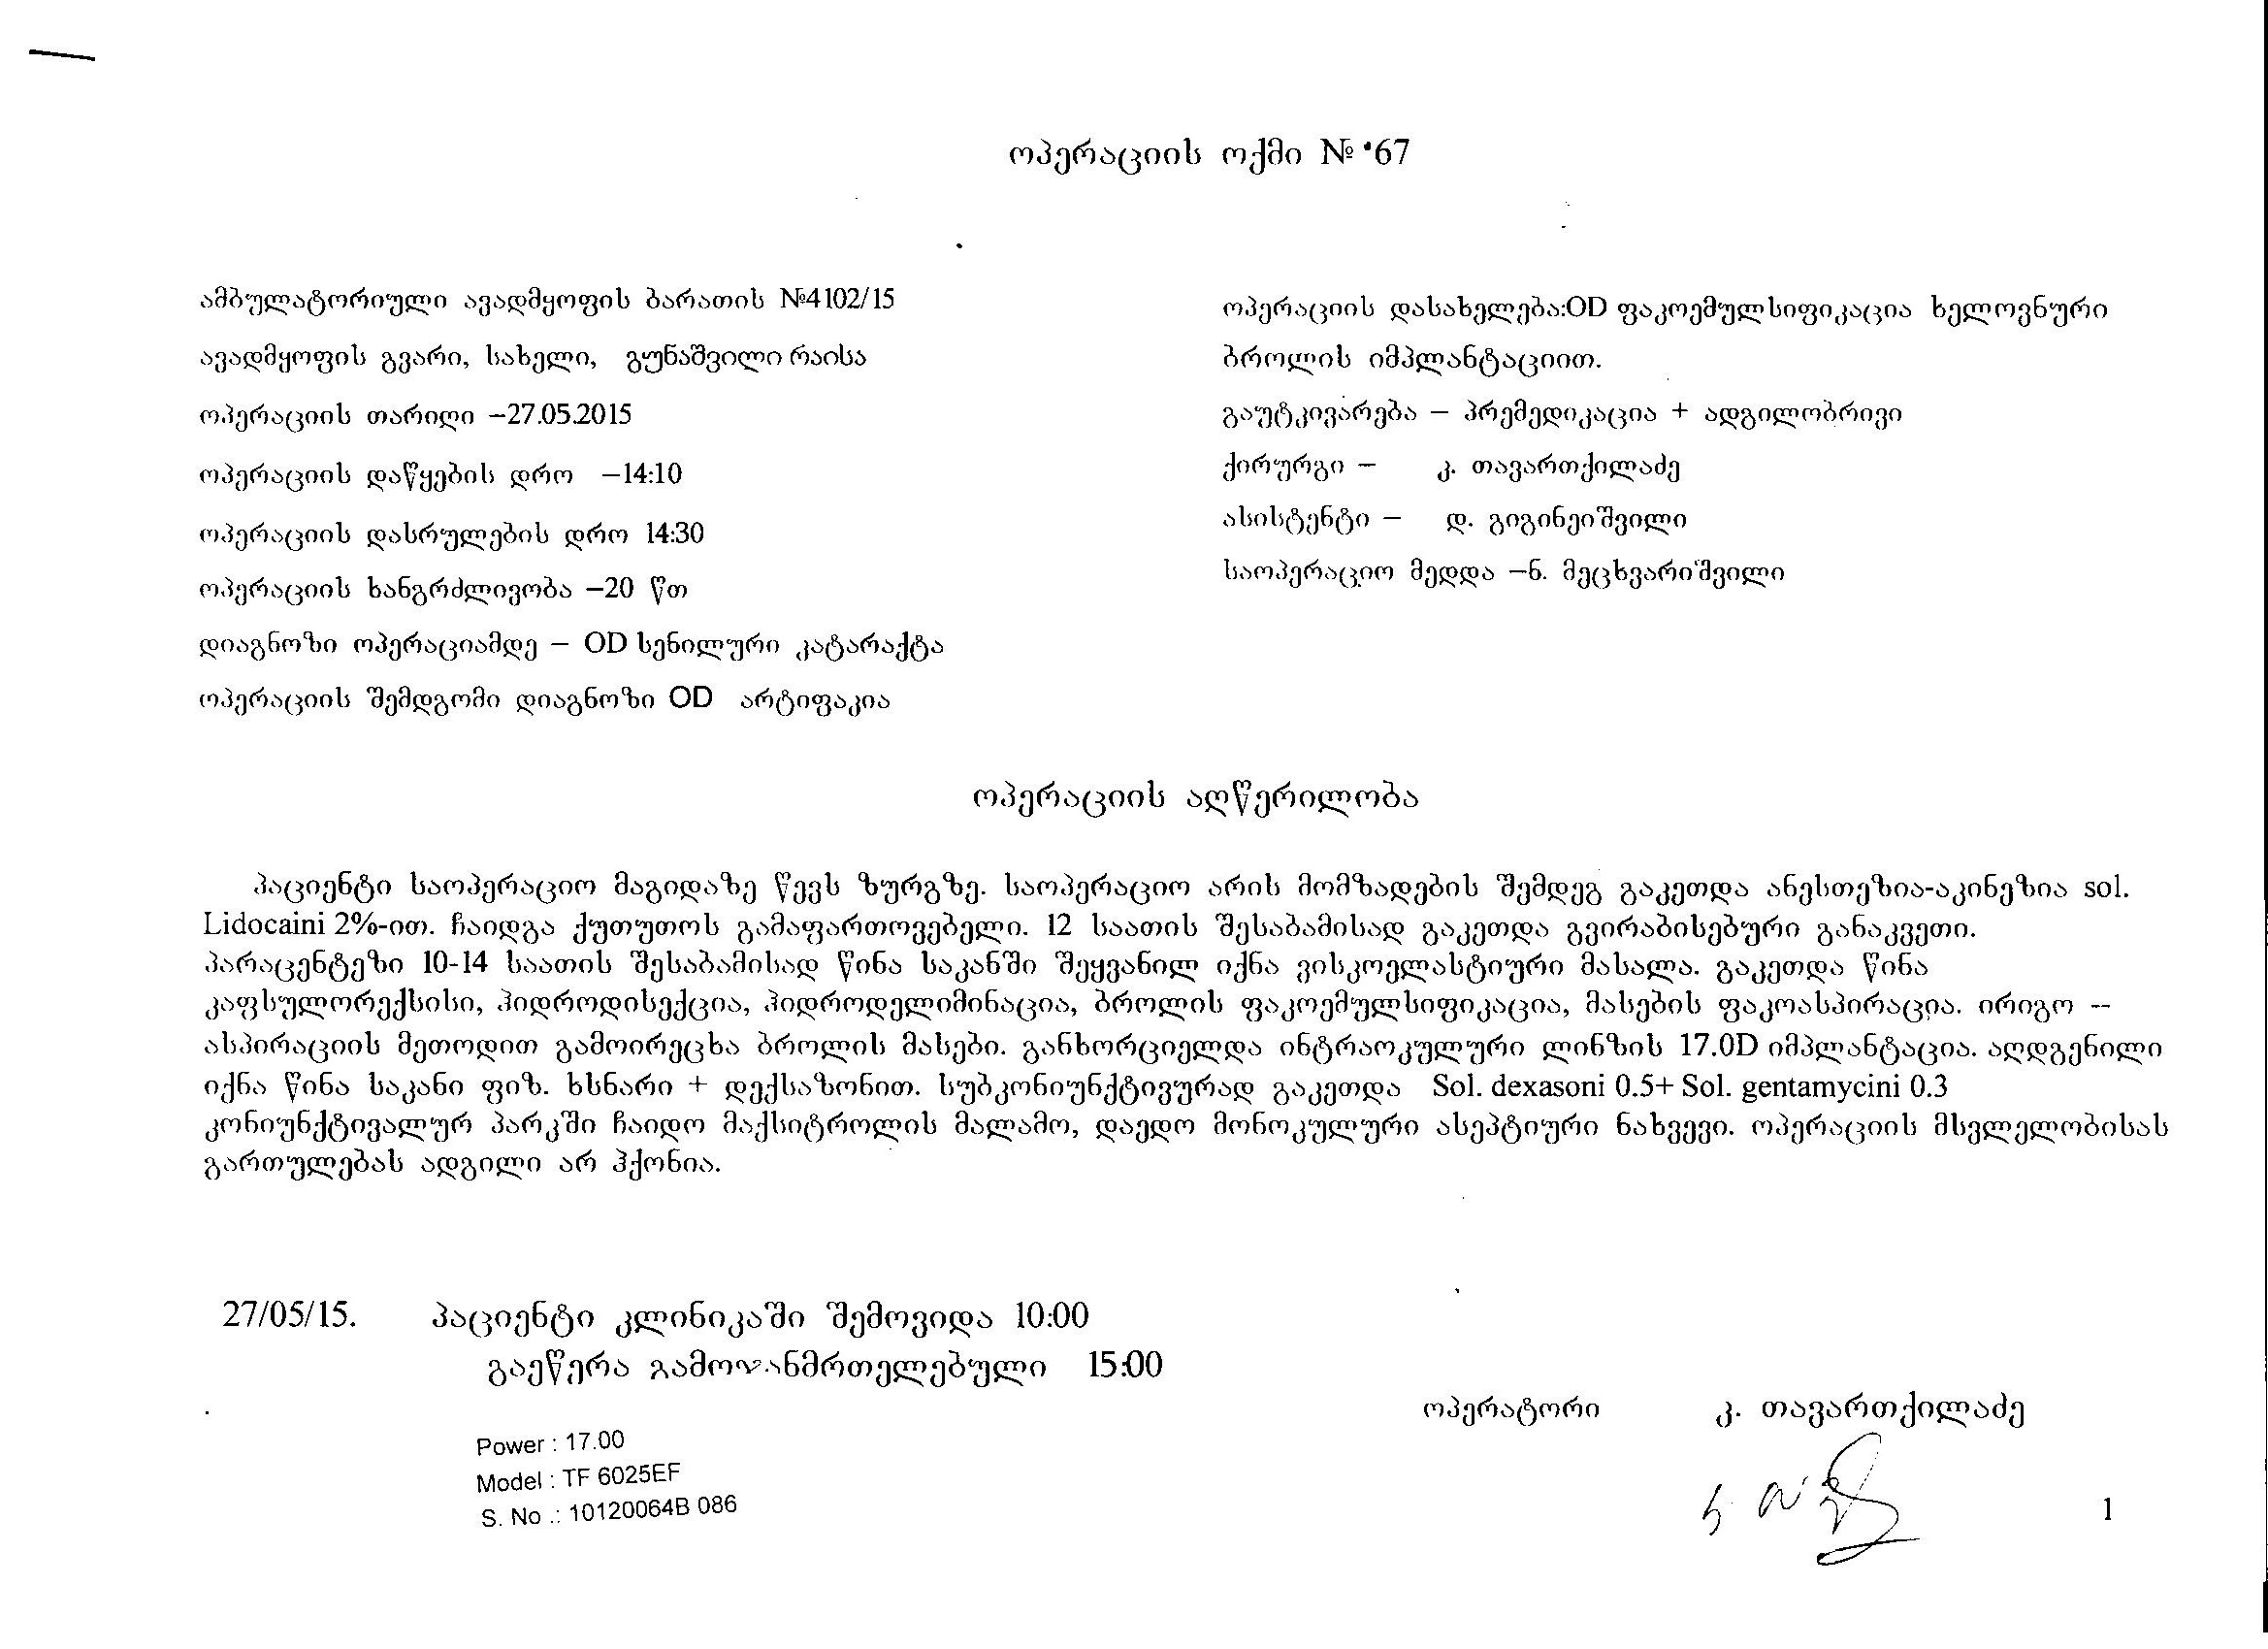 ოპერაციის ოქმი № 67
ამბულატორიული ავადმყოფის ბარათის №4102/15
ავადმყოფის გვარი, სახელი, გუნაშვილი რაისა
ოპერაციის თარიღი –27.05.2015
ოპერაციის დაწყების დრო –14:10
ოპერაციის დასრულების დრო 14:30
ოპერაციის ხანგრძლივობა –20 წთ
დიაგნოზი ოპერაციამდე – OD სენილური კატარაქტა
ოპერაციის შემდგომი დიაგნოზი OD არტიფაკია
ოპერაციის დასახელება:OD ფაკოემულსიფიკაცია ხელოვნური
ბროლის იმპლანტაციით.
გაუტკივარება – პრემედიკაცია + ადგილობრივი
ქირურგი – კ. თავართქილაძე
ასისტენტი – დ. გიგინეიშვილი
საოპერაციო მედდა –ნ. მეცხვარიშვილი
ოპერაციის აღწერილობა
პაციენტი საოპერაციო მაგიდაზე წევს ზურგზე. საოპერაციო არის მომზადების შემდეგ გაკეთდა ანესთეზია-აკინეზია sol.
Lidocaini 2%-ით. ჩაიდგა ქუთუთოს გამაფართოვებელი. 12 საათის შესაბამისად გაკეთდა გვირაბისებური განაკვეთი.
პარაცენტეზი 10-14 საათის შესაბამისად წინა საკანში შეყვანილ იქნა ვისკოელასტიური მასალა. გაკეთდა წინა
კაფსულორექსისი, ჰიდროდისექცია, ჰიდროდელიმინაცია, ბროლის ფაკოემულსიფიკაცია, მასების ფაკოასპირაცია. ირიგო --
ასპირაციის მეთოდით გამოირეცხა ბროლის მასები. განხორციელდა ინტრაოკულური ლინზის 17.0D იმპლანტაცია. აღდგენილი
იქნა წინა საკანი ფიზ. ხსნარი + დექსაზონით. სუბკონიუნქტივურად გაკეთდა Sol. dexasoni 0.5+ Sol. gentamycini 0.3
კონიუნქტივალურ პარკში ჩაიდო მაქსიტროლის მალამო, დაედო მონოკულური ასეპტიური ნახვევი. ოპერაციის მსვლელობისას
გართულებას ადგილი არ ჰქონია.
27/05/15. პაციენტი კლინიკაში შემოვიდა 10:00
გაეწერა გამოჯანმრთელებული 15:00
ოპერატორი კ. თავართქილაძე
Power : 17.00
Model : TF 6025EF
S. No .: 10120064B 086
1